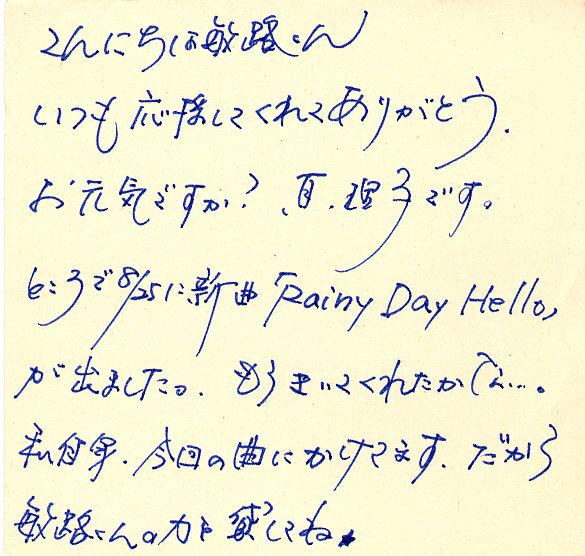 こんにちは敏路さん
いつも応援してくれてありがとう.
お元気ですか? 真理子です。
ところで8/25に新曲「Rainy Day Hello」
が出ました。もうきいてくれたかしら…。
私自身、今回の曲にかけてます. だから
敏路さんの力を貸してね.